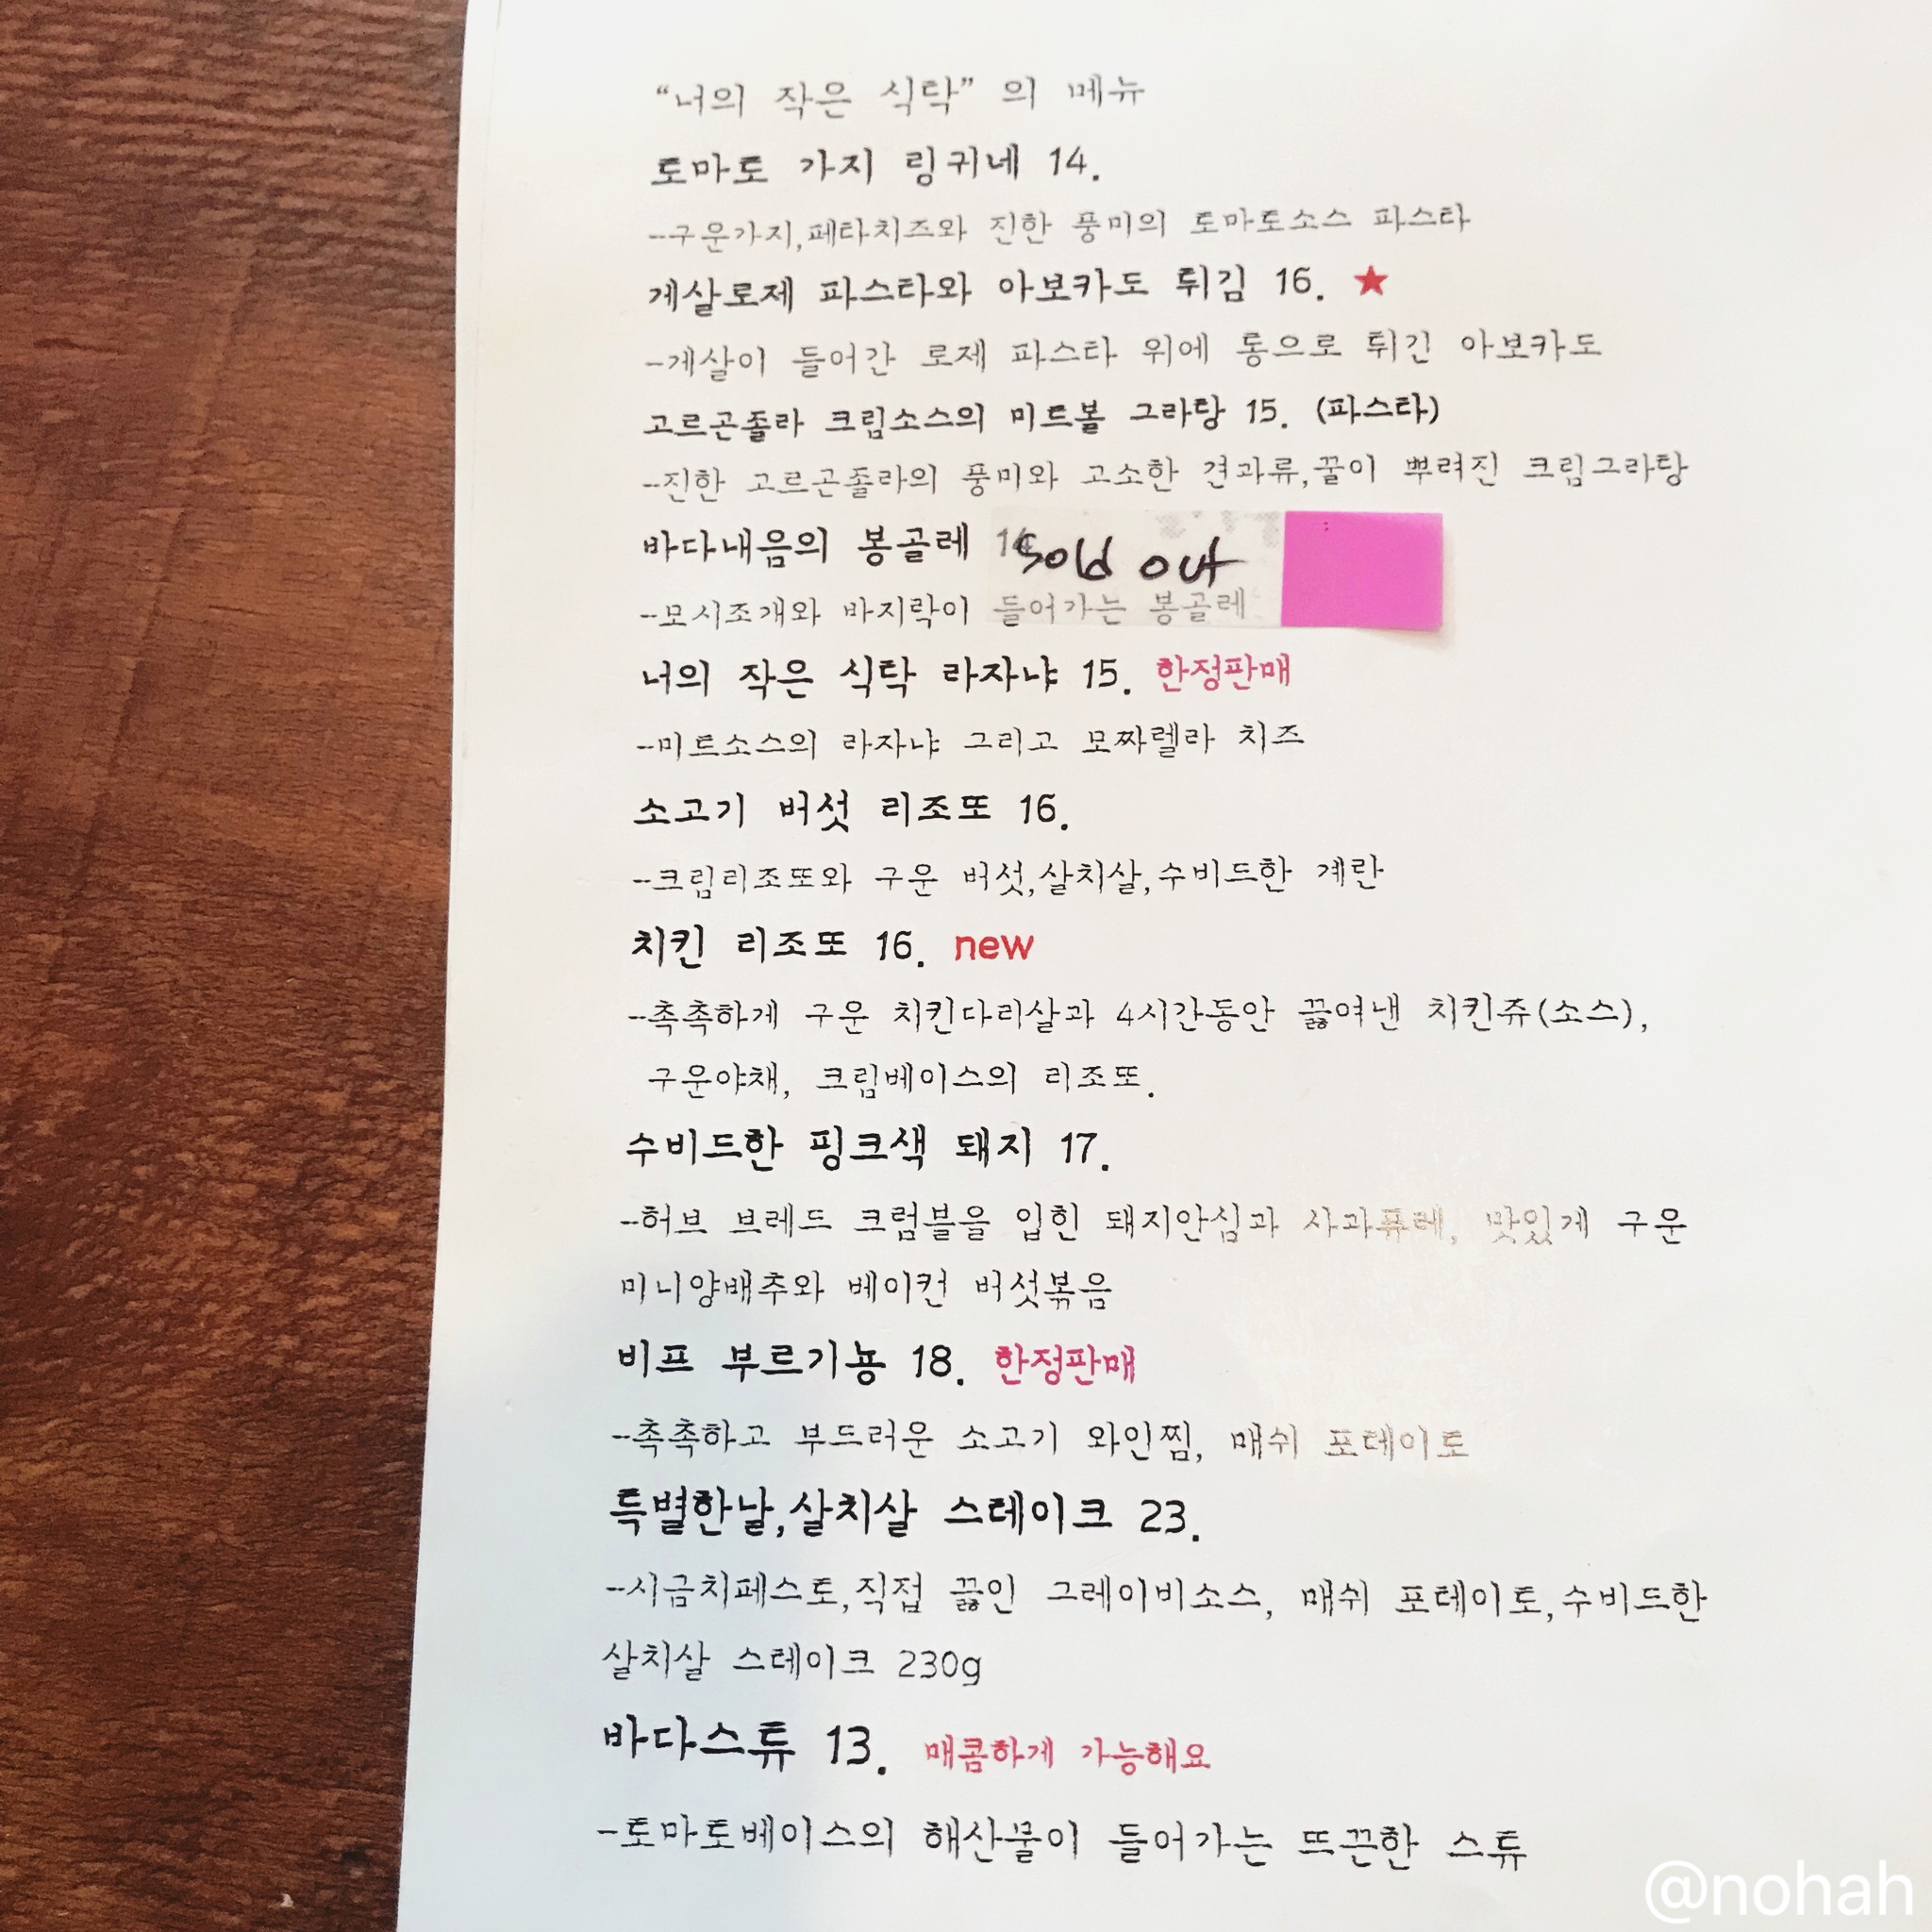 “너의 작은 식탁” 의 메뉴
토마토 가지 링귀네 14.
-구운가지,페타치즈와 진한 풍미의 토마토소스 파스타
게살로제 파스타와 아보카도 튀김 16. ★
-게살이 들어간 로제 파스타 위에 통으로 튀긴 아보카도
고르곤졸라 크림소스의 미트볼 그라탕 15. (파스타)
-진한 고르곤졸라의 풍미와 고소한 견과류,꿀이 뿌려진 크림그라탕
바다내음의 봉골레 14 Sold out
-모시조개와 바지락이 들어가는 봉골레
너의 작은 식탁 라자냐 15. 한정판매
-미트소스의 라자냐 그리고 모짜렐라 치즈
소고기 버섯 리조또 16.
-크림리조또와 구운 버섯,살치살,수비드한 계란
치킨 리조또 16. new
-촉촉하게 구운 치킨다리살과 4시간동안 끓여낸 치킨쥬(소스),
구운야채, 크림베이스의 리조또.
수비드한 핑크색 돼지 17.
-허브 브레드 크럼블을 입힌 돼지안심과 사과퓨레, 맛있게 구운
미니양배추와 베이컨 버섯볶음
비프 부르기뇽 18. 한정판매
-촉촉하고 부드러운 소고기 와인찜, 매쉬 포테이토
특별한날,살치살 스테이크 23.
-시금치페스토,직접 끓인 그레이비소스, 매쉬 포테이토,수비드한
살치살 스테이크 230g
바다스튜 13. 매콤하게 가능해요
-토마토베이스의 해산물이 들어가는 뜨끈한 스튜
@nohah